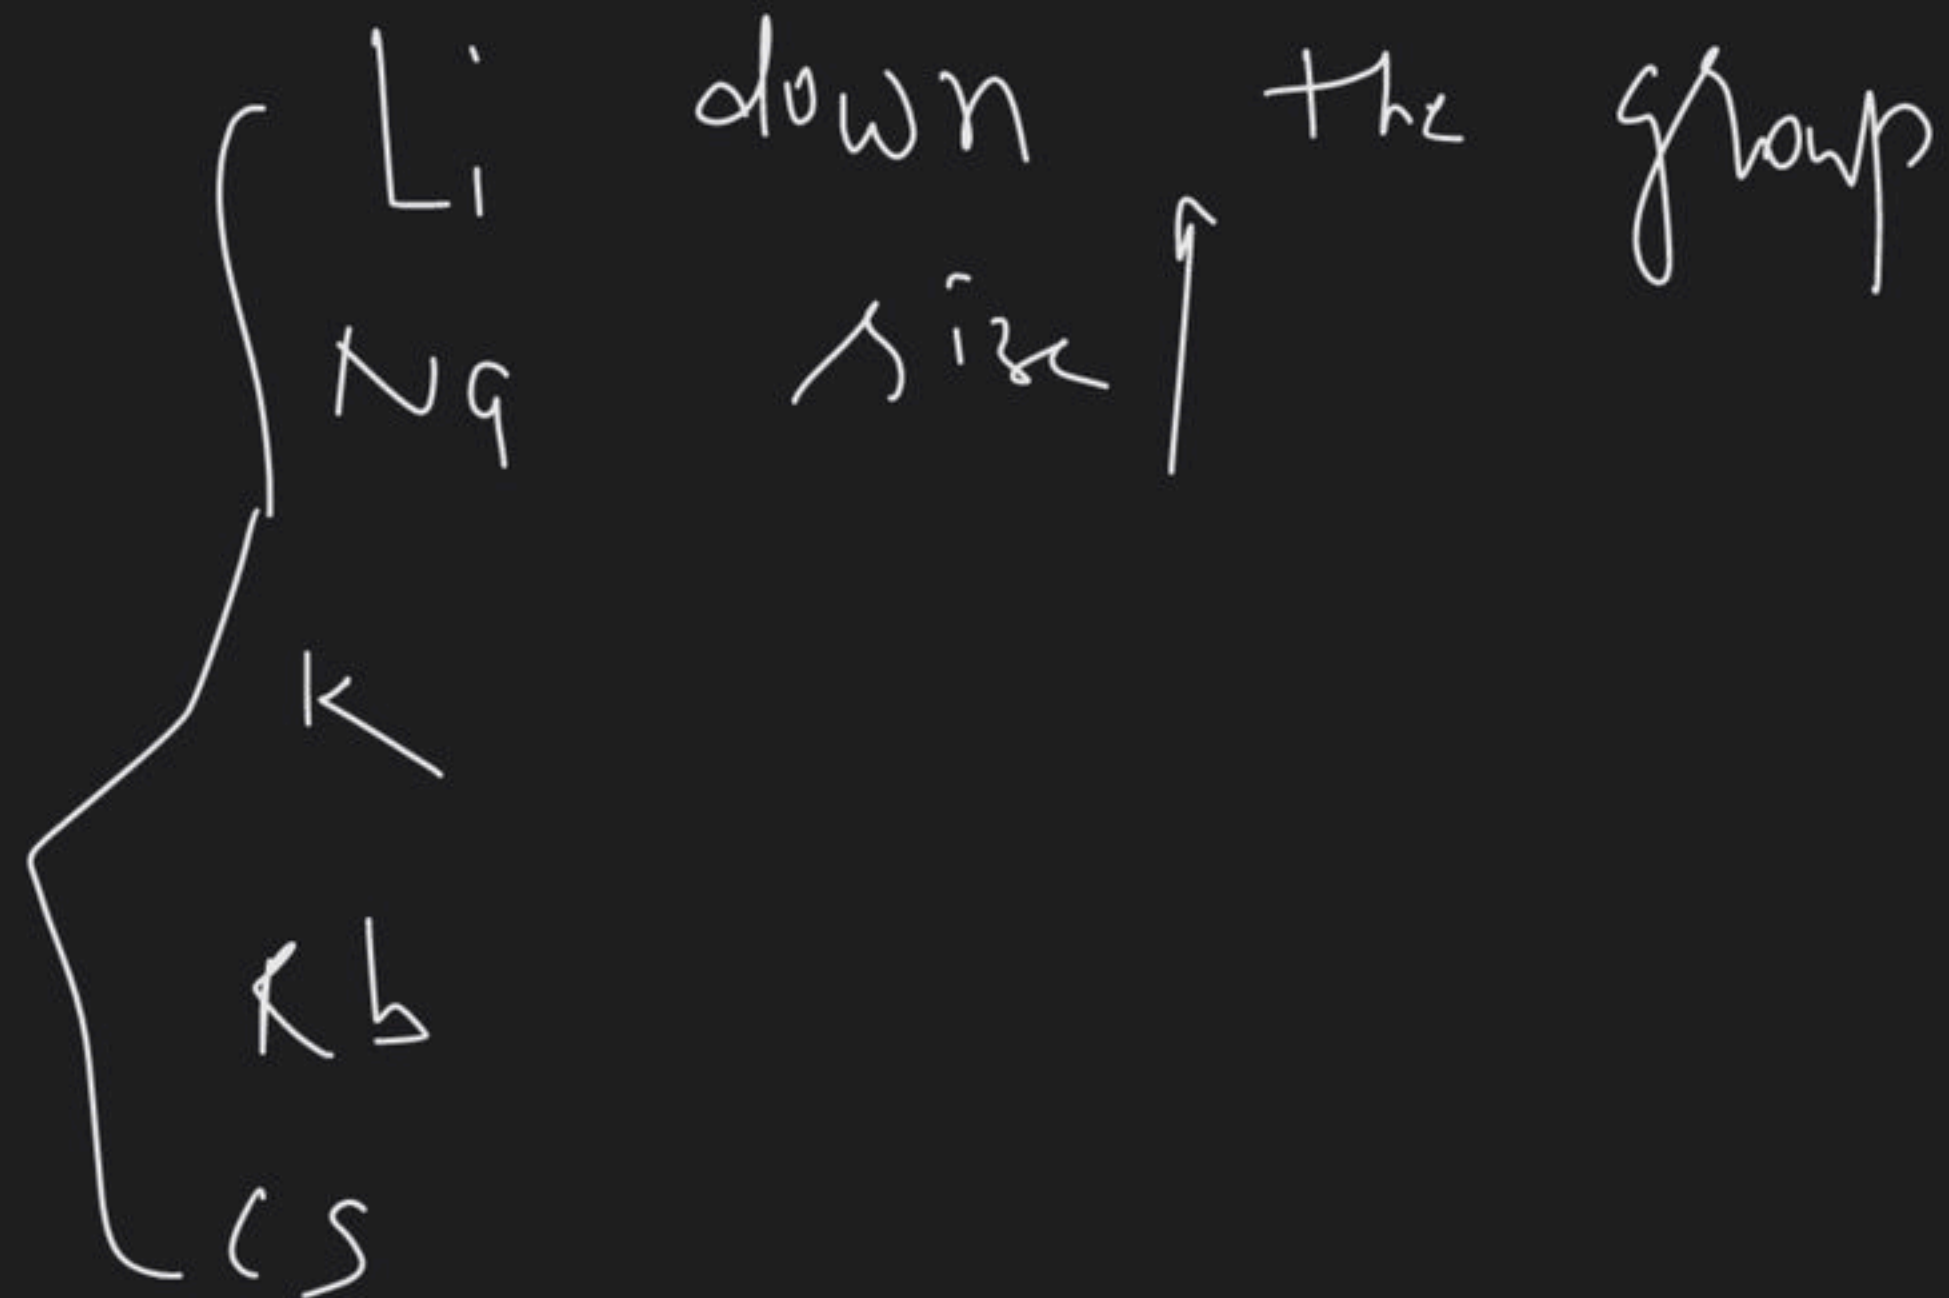 Li down the group
Na size ↑
K
Rb
Cs